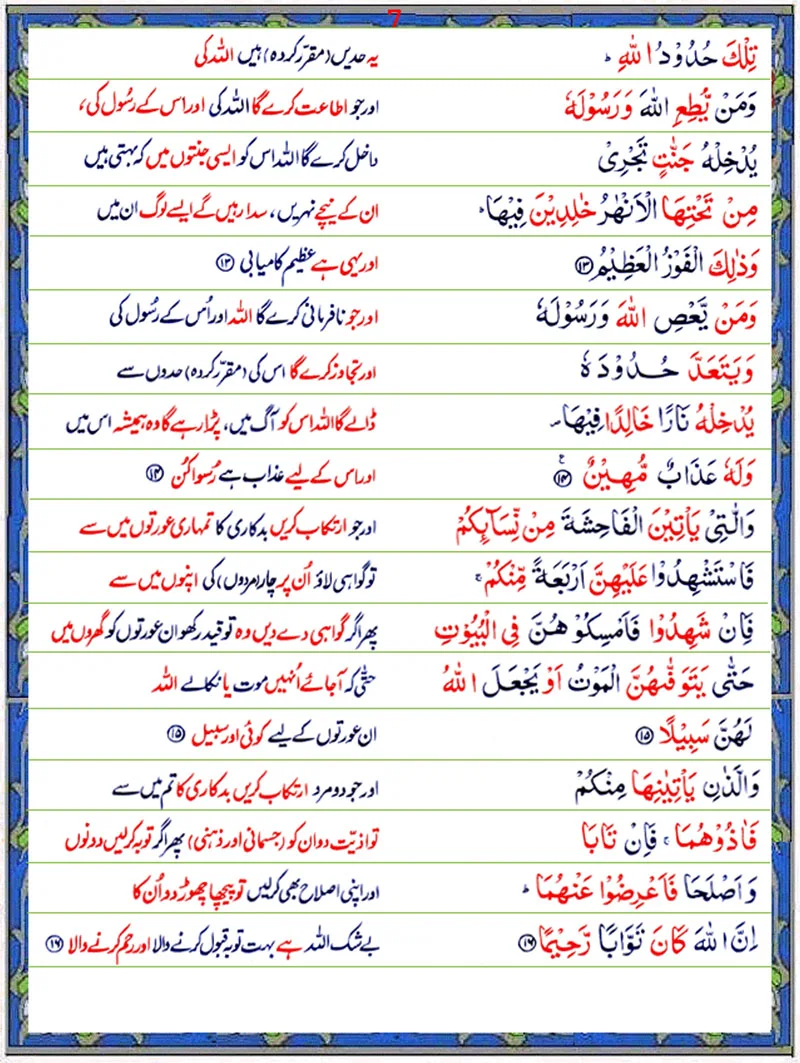 7
تِلْكَ حُدُوْدُ اللّٰهِ ؕ یہ حدیں (مقرّر کردہ) ہیں اللہ کی
وَمَنْ يُّطِعِ اللّٰهَ وَرَسُوْلَهٗ اور جو اطاعت کرے گا اللہ کی اور اس کے رسُول کی،
يُدْخِلْهُ جَنّٰتٍ تَجْرِىْ داخل کرے گا اللہ اس کو ایسی جنتوں میں کہ بہتی ہیں
مِنْ تَحْتِهَا الْاَنْهٰرُ خٰلِدِيْنَ فِيْهَا ؕ ان کے نیچے نہریں، سدا رہیں گے ایسے لوگ ان میں
وَذٰلِكَ الْفَوْزُ الْعَظِيْمُ ۝۱۳ اور یہی ہے عظیم کامیابی ۝۱۳
وَمَنْ يَّعْصِ اللّٰهَ وَرَسُوْلَهٗ اور جو نافرمانی کرے گا اللہ اور اُس کے رسُول کی
وَيَتَعَدَّ حُدُوْدَهٗ اور تجاوز کرے گا اس کی (مقرّر کردہ) حدوں سے
يُدْخِلْهُ نَارًا خَالِدًا فِيْهَا ۪ ڈالے گا اللہ اس کو آگ میں، پڑا رہے گا وہ ہمیشہ اس میں
وَلَهٗ عَذَابٌ مُّهِيْنٌ ۝۱۴ ع اور اس کے لیے عذاب ہے رُسوا کُن ۝۱۴
وَالّٰتِىْ يَاْتِيْنَ الْفَاحِشَةَ مِنْ نِّسَآئِكُمْ اور جو ارتکاب کریں بدکاری کا تمہاری عورتوں میں سے
فَاسْتَشْهِدُوْا عَلَيْهِنَّ اَرْبَعَةً مِّنْكُمْ ۚ تو گواہی لاؤ اُن پر چار (مردوں) کی اپنوں میں سے
فَاِنْ شَهِدُوْا فَاَمْسِكُوْهُنَّ فِى الْبُيُوْتِ پھر اگر گواہی دے دیں وہ تو قید رکھو ان عورتوں کو گھروں میں
حَتّٰى يَتَوَفّٰىهُنَّ الْمَوْتُ اَوْ يَجْعَلَ اللّٰهُ حتّٰی کہ آجائے اُنہیں موت یا نکالے اللہ
لَهُنَّ سَبِيْلًا ۝۱۵ ان عورتوں کے لیے کوئی اور سبیل ۝۱۵
وَالَّذٰنِ يَاْتِيٰنِهَا مِنْكُمْ اور جو دو مرد ارتکاب کریں بدکاری کا تم میں سے
فَاٰذُوْهُمَا ۚ فَاِنْ تَابَا تو اذیّت دو ان کو (جسمانی اور ذہنی) پھر اگر توبہ کرلیں دونوں
وَاَصْلَحَا فَاَعْرِضُوْا عَنْهُمَا ؕ اور اپنی اصلاح بھی کرلیں تو پیچھا چھوڑ دو اُن کا
اِنَّ اللّٰهَ كَانَ تَوَّابًا رَّحِيْمًا ۝۱۶ بے شک اللہ ہے بہت توبہ قبول کرنے والا اور رحم کرنے والا ۝۱۶